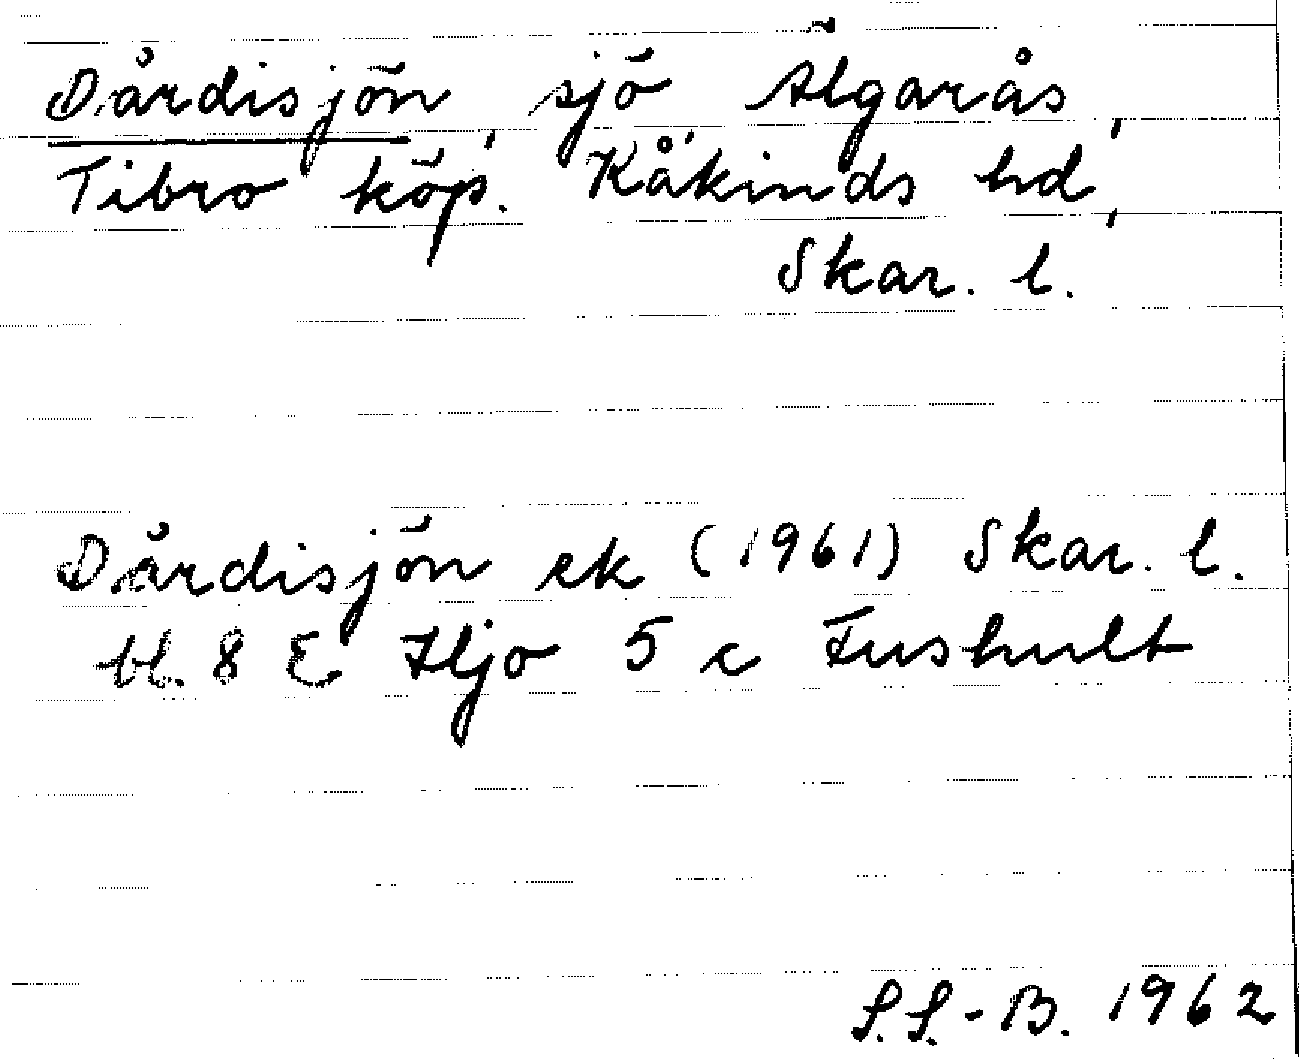 Dårdisjön, sjö Älgarås,
Tibro köp. Kåkinds hd,
Skar. l.
Dårdisjön ek (1961) Skar. l.
bl. 8 E Hjo 5 c Fushult
S.S.-B. 1962